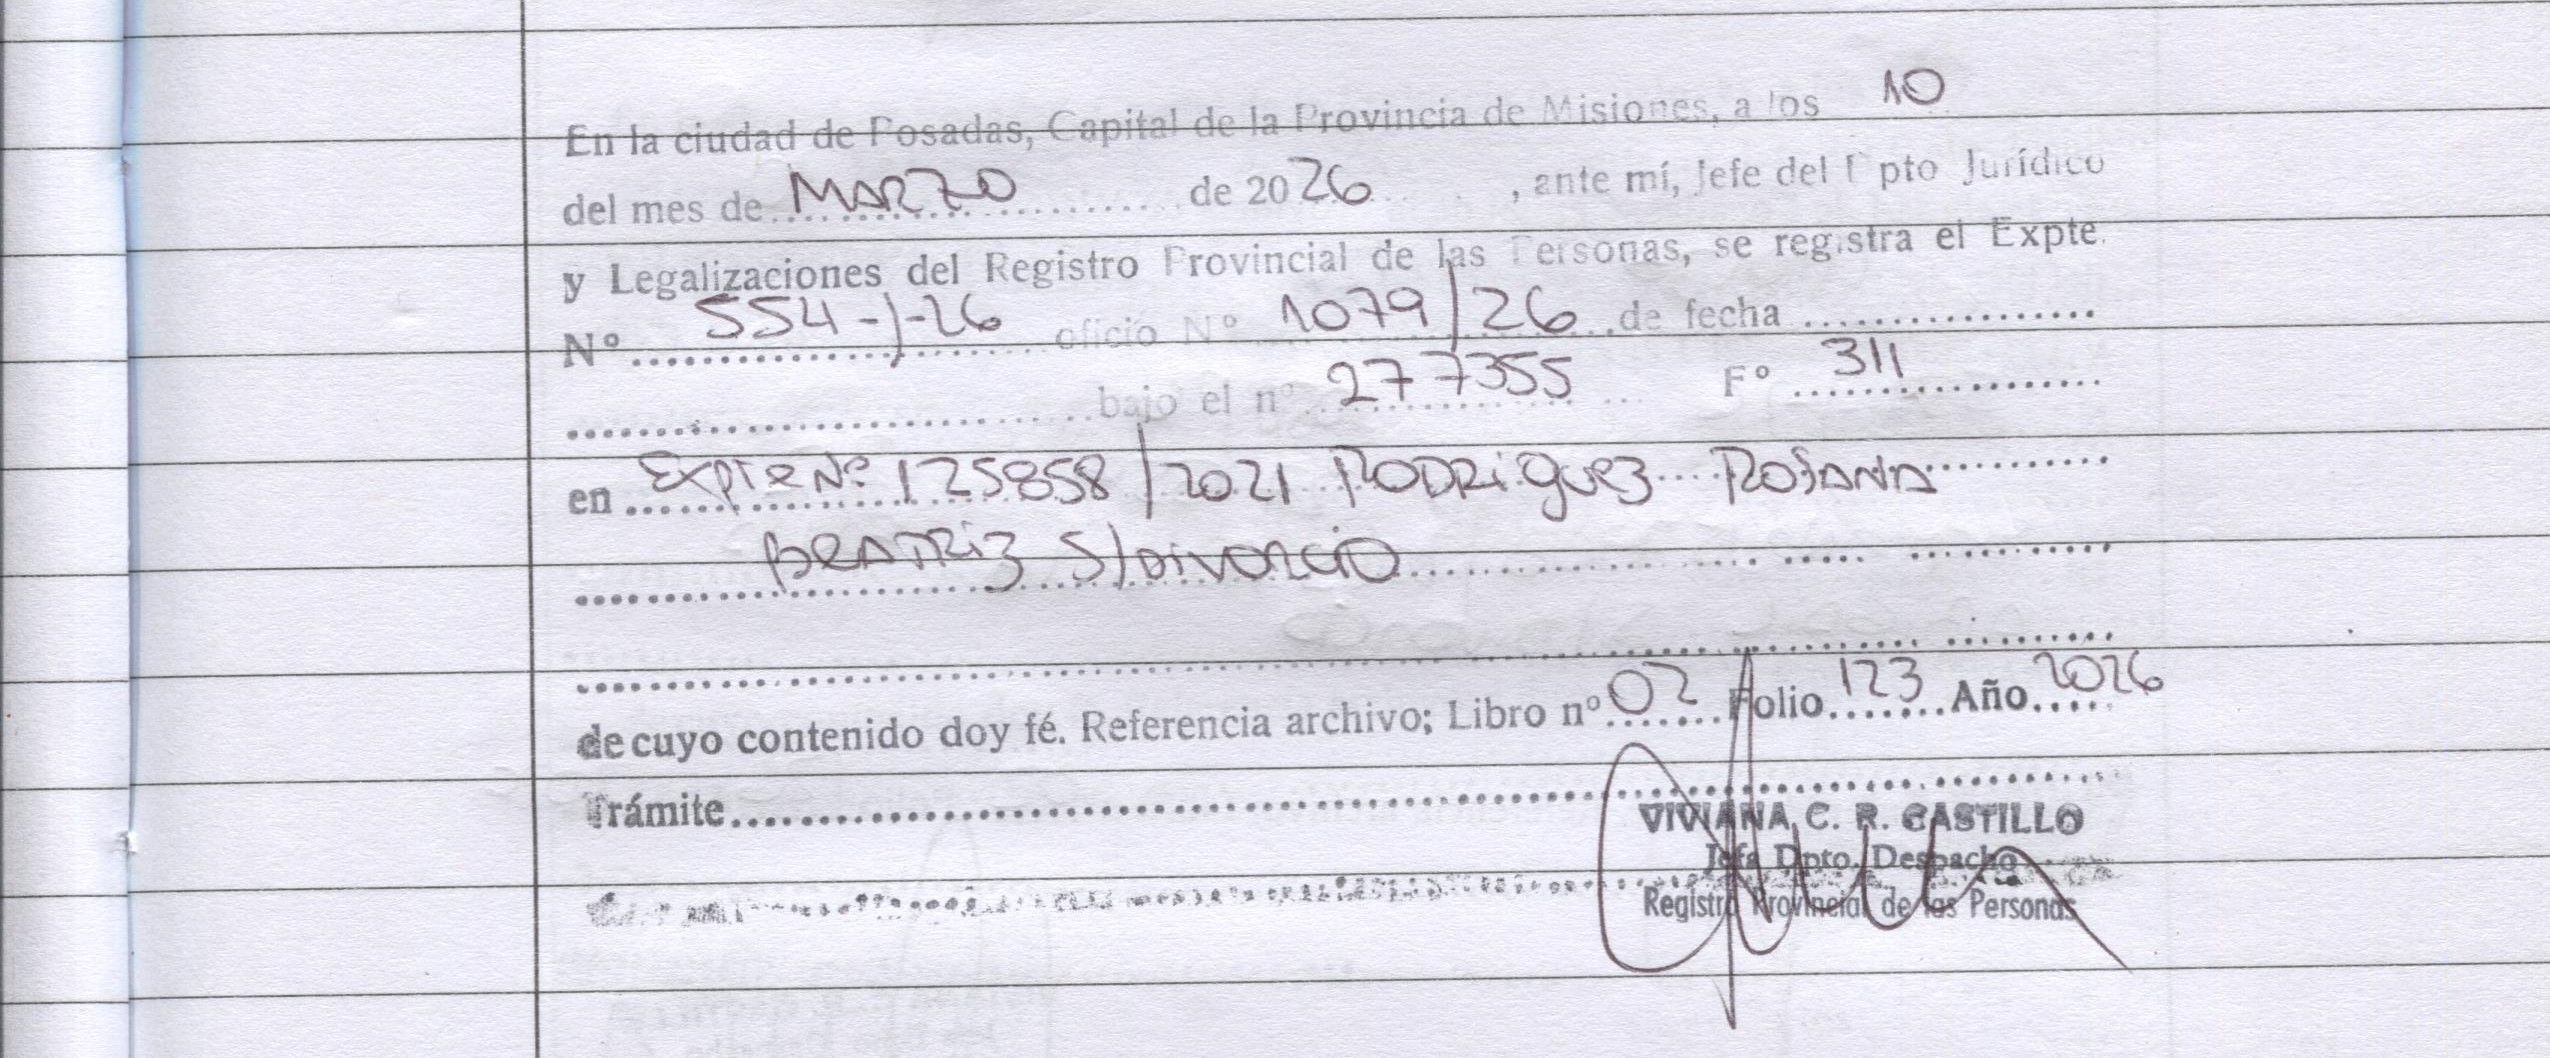 En la ciudad de Posadas, Capital de la Provincia de Misiones, a los 10
del mes de MARZO de 2026, ante mí, Jefe del Dpto Jurídico
y Legalizaciones del Registro Provincial de las Personas, se registra el Expte.
Nº 554-J-26 oficio Nº 1079/26 de fecha
bajo el nº 277355 Fº 311
en Expte Nº 125858/2021 RODRiguez ROSANA
BEATRiz S/DiVORCiO
de cuyo contenido doy fé. Referencia archivo; Libro nº 02 Folio 123 Año 2026
Trámite
VIVIANA C. R. CASTILLO
Jefa Dpto. Despacho
Registro Provincial de las Personas